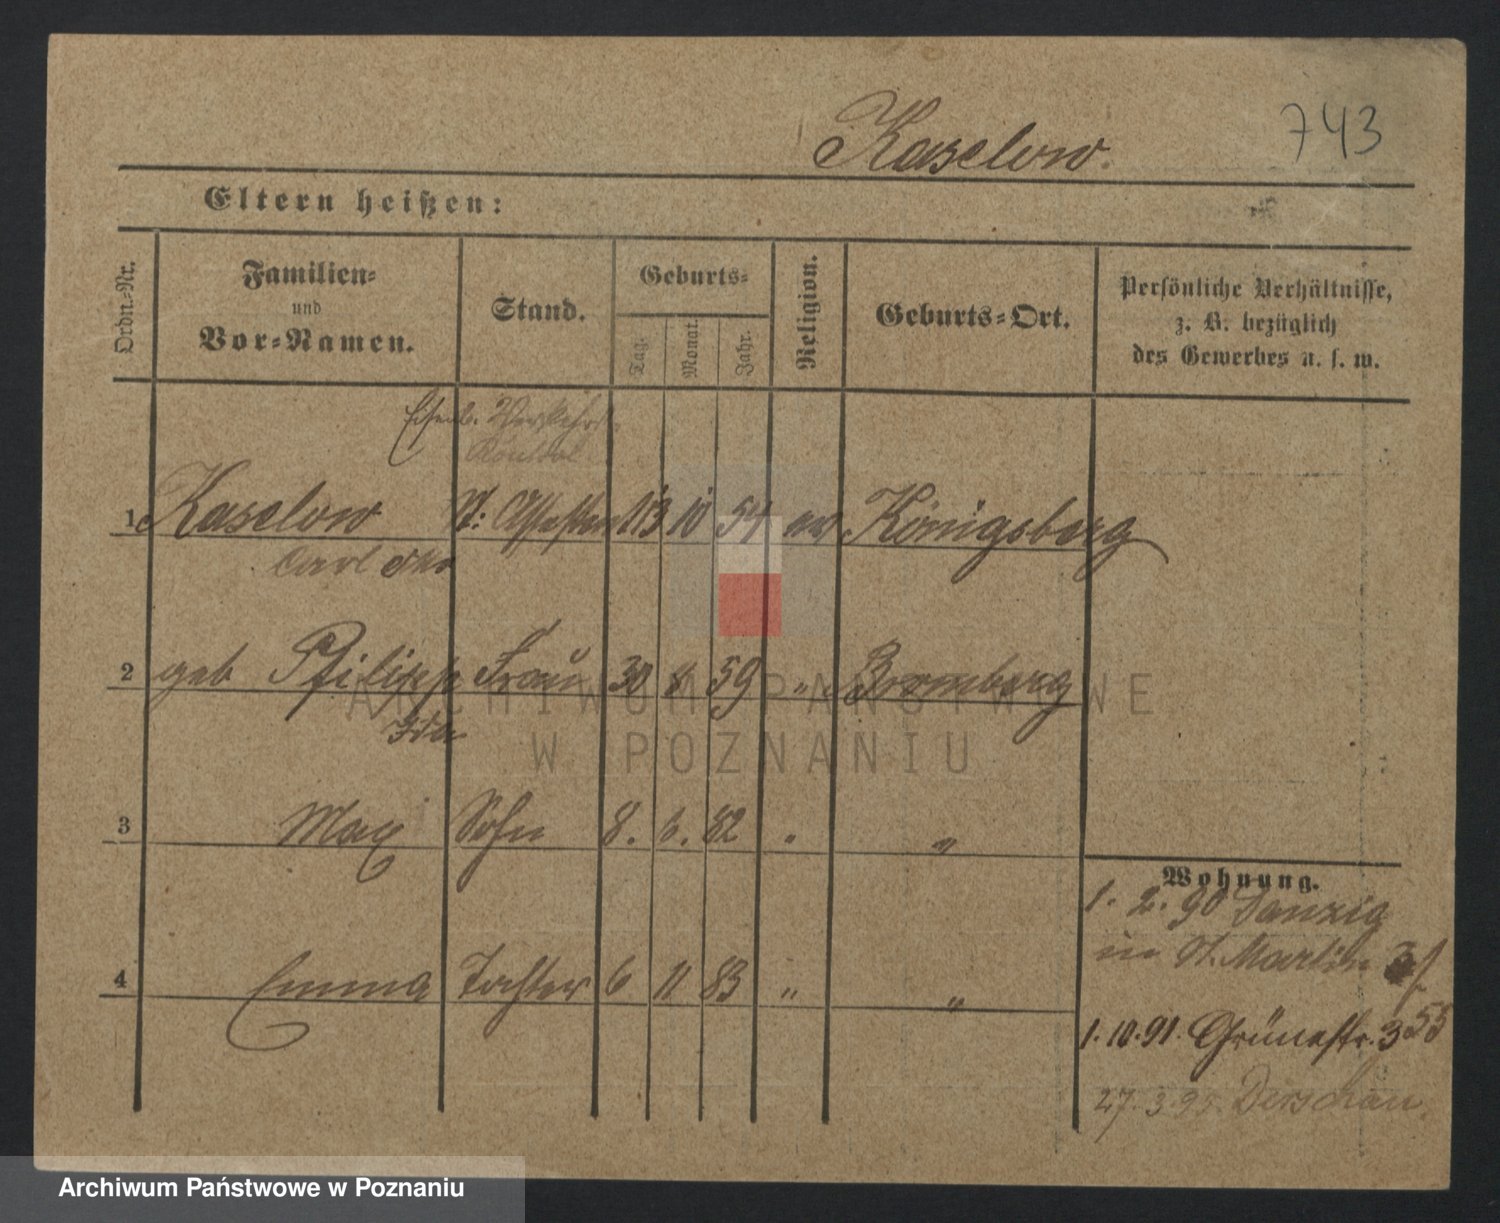 743
Kaselow.
Eltern heißen:
Ordn.-Nr.
Familien-
und
Vor-Namen.
Stand.
Geburts-
Tag.
Monat.
Jahr.
Religion.
Geburts-Ort.
Persönliche Verhältnisse,
z. B. bezüglich
des Gewerbes u. s. w.
Eisenb. Verkehrs
1 Kaselow 13 10 54 ev Königsberg
Carl
2 geb Philipp Frau 30 8 59 " Bromberg
Ida
3 Max Sohn 8. 6. 82 " "
4 Emma Tochter 6 11 83 " "
Wohnung.
1. 2. 90 Danzig
in St. Martin
1.10.91. Grünestr. 3
27. 3. 95. Derschau.
ARCHIWUM PAŃSTWOWE
W POZNANIU
Archiwum Państwowe w Poznaniu